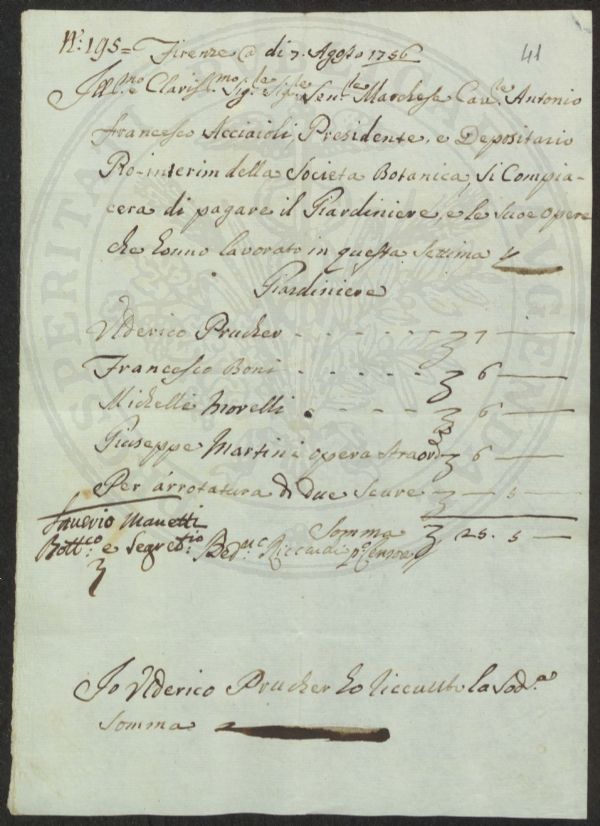 N.° 195 = Firenze @ di 7. Agosto 1756
41
Ill.mo e Clariss.mo Sig.re Sig.re Sen.te Marchese Cav.re Antonio
Francesco Acciaioli, Presidente, e Depositario
Pro-interim della Società Botanica, Si Compia-
cerà di pagare il Giardiniere, e le Sue opere
che hanno lavorato in questa Settima
Giardiniere
Vlderico Prucher - - - - - - 7 —
Francesco Boni - - - - - - 6 —
Michelle Morelli - - - - - 6 —
Giuseppe Martini opera Straord. 6 —
Per arrotatura di due Scure — 5 —
Saverio Manetti
Somma 25. 5 —
Bott.co e Segret.rio Bed.
Io Vlderico Prucher ho riceuuto la Sod.a
Somma